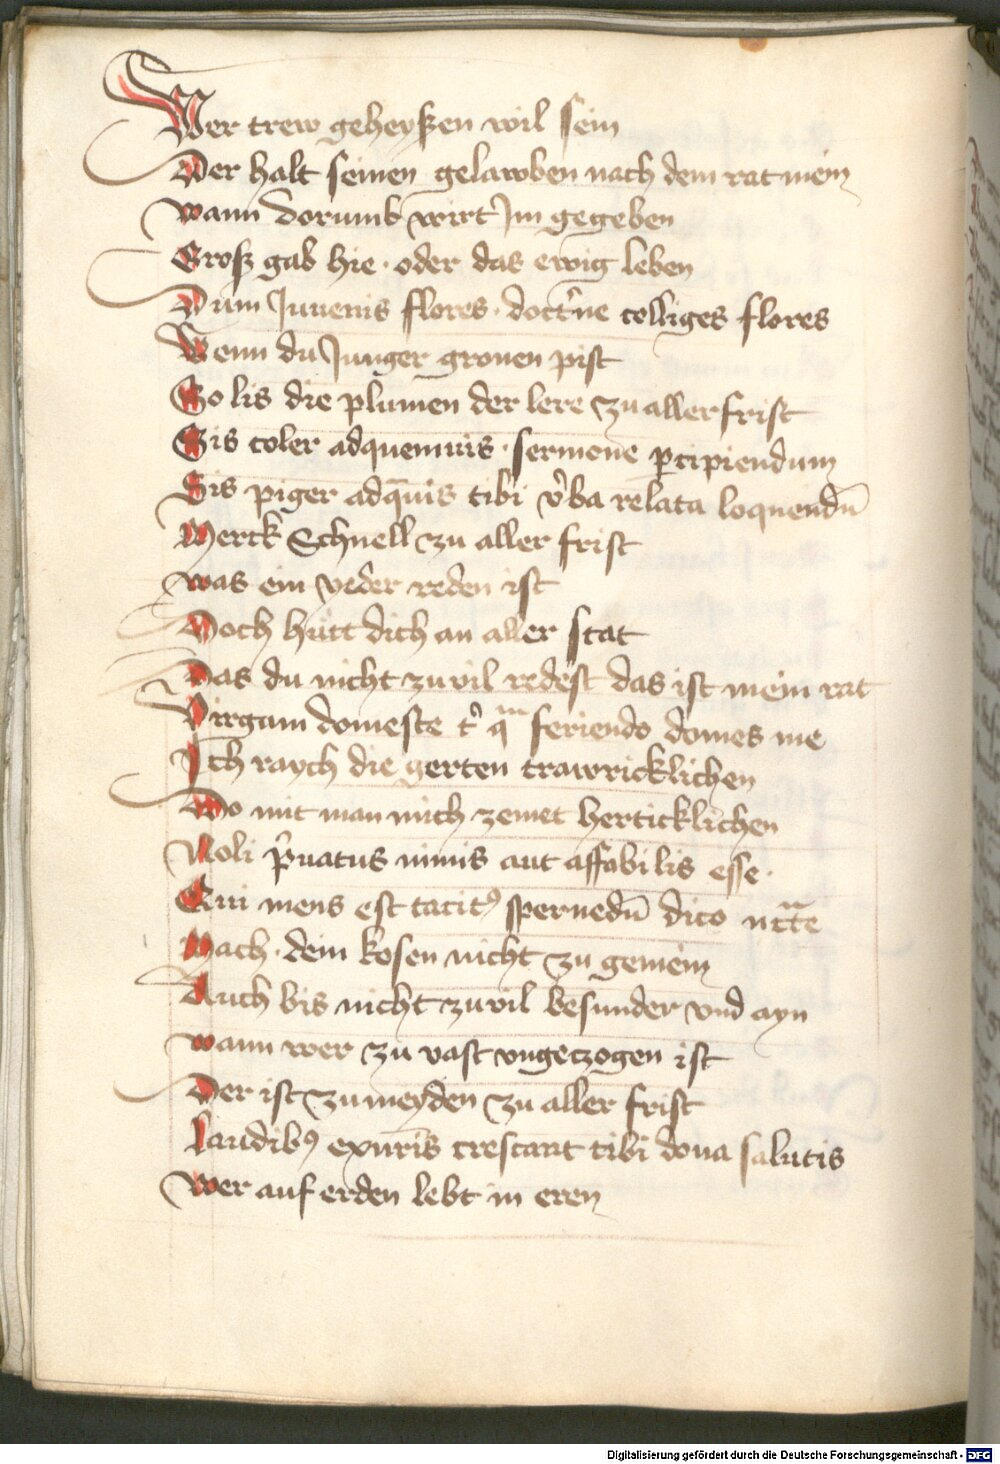 Wer trew geheyßen wil sein
Der halt seinen gelawben nach dem rat mein
wann dorumb wirt Im gegeben
Groß gab hie · oder das ewig leben
Dum Juuenis flores · doct'ne colliges flores
Wenn du Junger gronen pist
So lis die plumen der lere zu aller frist
Sis celer adquemuis · sermone p̄cipiendum
Sis piger adq̄uis tibi v̓ba relata loquendū
Merck Schnell zu aller frist
was ein yeder reden ist
Doch hütt dich an aller stat
Das du nicht zuvil redest das ist mein rat
Virgam domeste t' qm feriendo domes me
Ich raych die gerten trawricklichen
Do mit man mich zemet herticklichen
Noli p̓uatus nimis aut affabilis esse ·
Cui mens est tacitꝰ spernedū dico
Mach · dein kosen nicht zu gemein
Auch bis nicht zuvil besunder vnd ayn
wann wer zu vast vngeczogen ist
Der ist zu meyden zu aller frist
Laudibꝰ exuris crescant tibi dona salutis
Wer auf erden lebt in eren
Digitalisierung gefördert durch die Deutsche Forschungsgemeinschaft - DFG